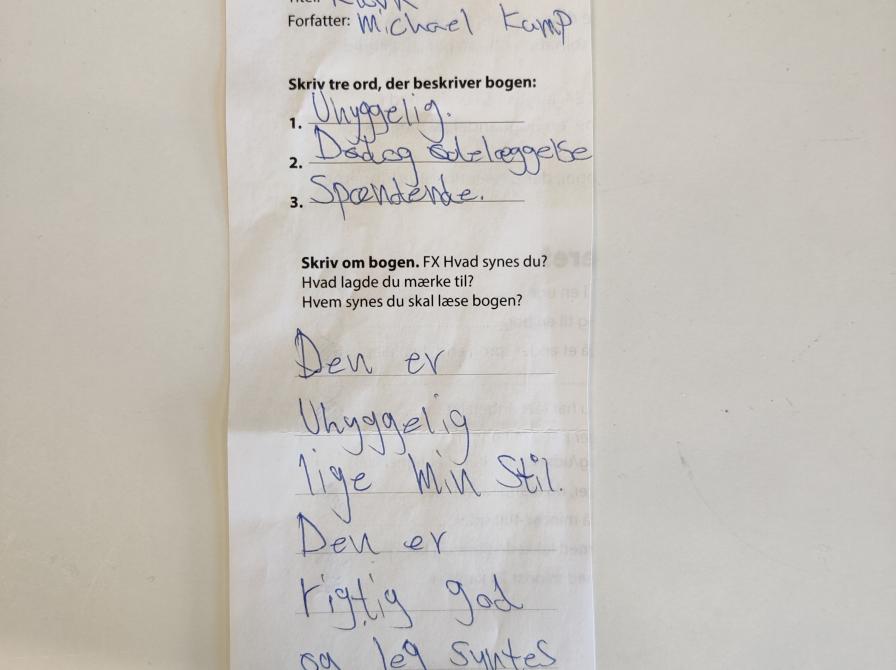 Forfatter: Michael Kamp
Skriv tre ord, der beskriver bogen:
1. Uhyggelig.
2. Død og ødelæggelse
3. Spændende.
Skriv om bogen. FX Hvad synes du?
Hvad lagde du mærke til?
Hvem synes du skal læse bogen?
Den er
Uhyggelig
lige min Stil.
Den er
rigtig god
og jeg syntes